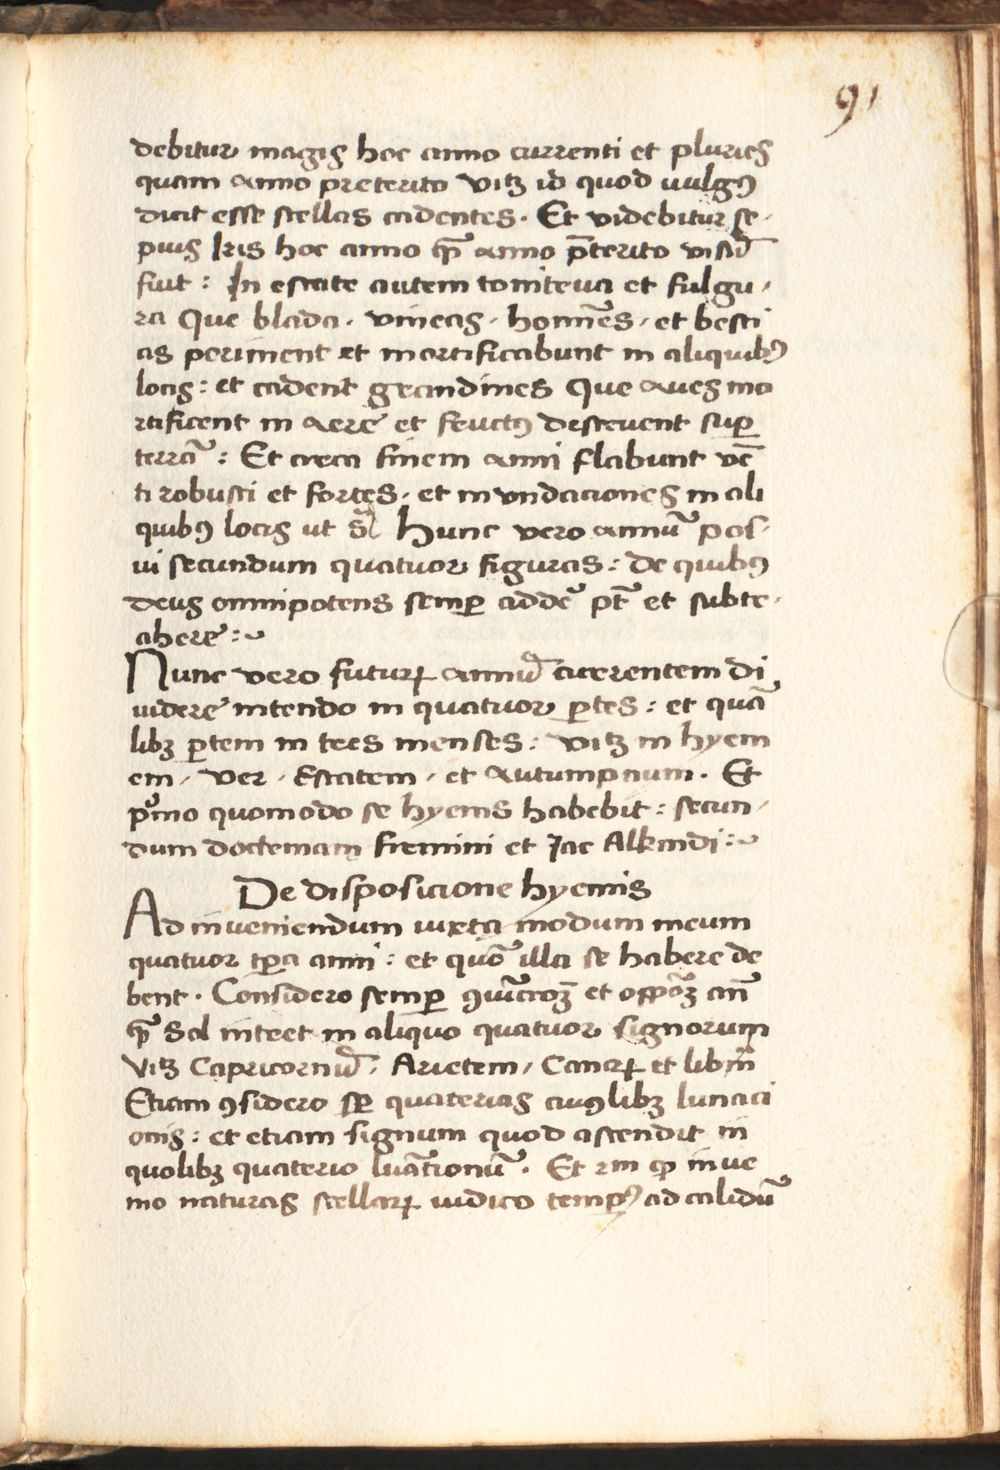 91
debitur magis hoc anno currenti et pluries
quam anno preterito vitꝫ id quod uulgꝰ
dicit esse stellas cadentes. Et videbitur se-
pius Iris hoc anno qͣ̄ anno p̄terito visū
fuit: In estate autem tonitrua et fulgu-
ra que blada, vineas, homīes, et besti
as periment et mortificabunt in aliquibꝰ
locis: et cadent grandines que aues mo
rtificent in aere et fructꝰ destruent suꝑ
terrā: Et circa finem anni flabunt vē
ti robusti et fortes, et inundaciones in ali
quibꝰ locis ut s̄ Hunc vero annū pos-
ui secundum quatuor figuras: de quibꝰ
deus omnipotens semꝑ addē pt̄ et subtr-
ahere:~
Nunc vero futuꝝ annū currentem di
uidere intendo in quatuor ꝑtes: et quā
libꝫ ꝑtem in tres menses: vitꝫ in hyem
em, ver, Estatem, et Autumpnum. Et
pͥmo quomodo se hyems habebit: secun-
dum doctrinam firmini et Jac Alkindi:~
De disposicione hyemis
Ad inueniendum iuxta modum meum
quatuor tp̄a anni: et quō illa se habere de
bent. Considero semꝑ ꝯiūctōꝫ et oppōꝫ an̄
qͣ̄ Sol intret in aliquo quatuor signorum
vitꝫ Capricornū, Arietem, Cancꝝ et librā
Etiam ꝯsidero sꝑ quaterias cuiꝰlibꝫ lunaci
onis: et etiam signum quod ascendit in
quolibꝫ quaterio lūationū. Et inue
nio naturas stellaꝝ iudico tempꝰ ad calidū